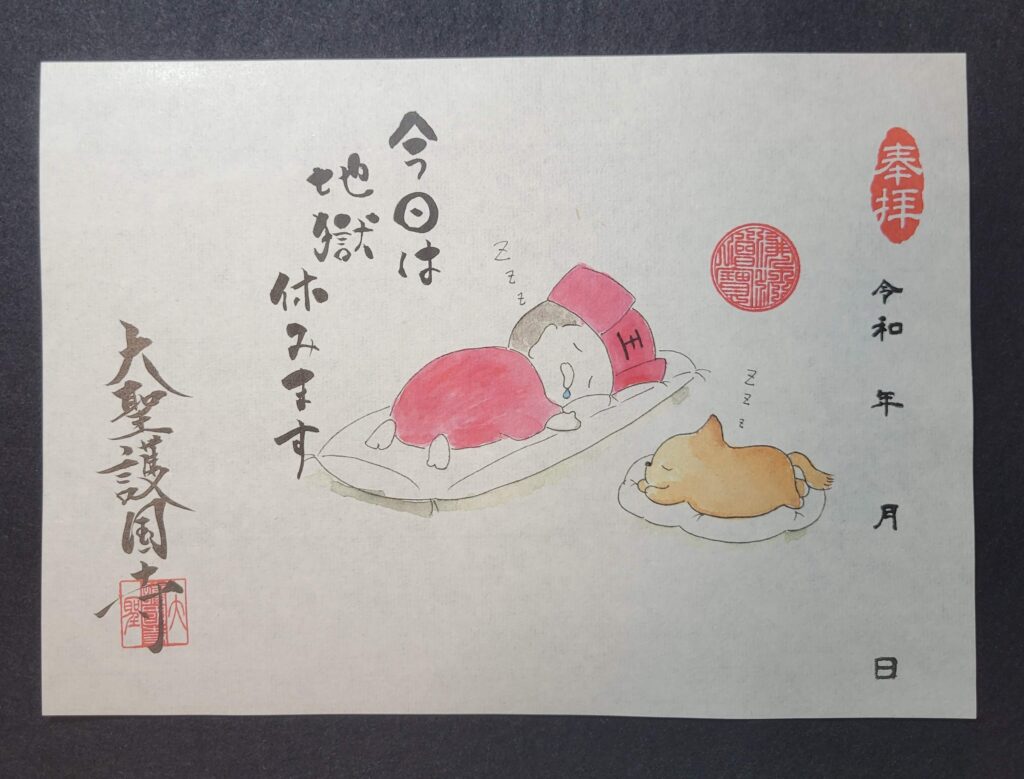 奉拝
令和 年 月 日
今日は
地獄
休みます
z
z
z
王
z
z
z
大聖護国寺